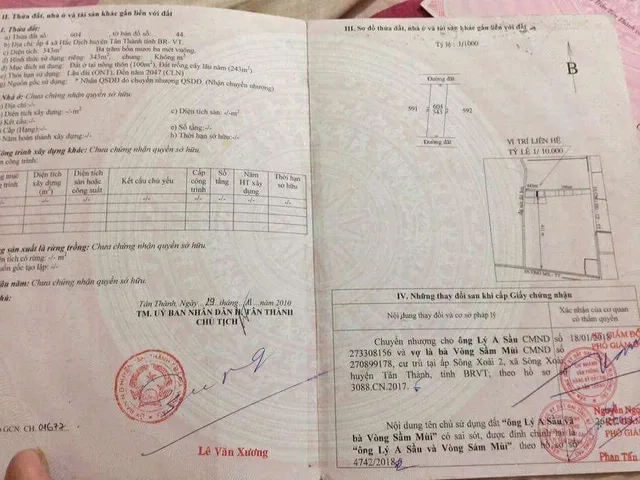 II. Thửa đất, nhà ở và tài sản khác gắn liền với đất
1. Thửa đất:
a) Thửa đất số: 604 tờ bản đồ số: 44
b) Địa chỉ: ấp 4 xã Hắc Dịch huyện Tân Thành tỉnh BR- VT.
c) Diện tích: 343m² Ba trăm bốn mươi ba mét vuông.
d) Hình thức sử dụng: riêng: 343m²; chung: Không m²
đ) Mục đích sử dụng: Đất ở tại nông thôn (100m²), Đất trồng cây lâu năm (243m²)
e) Thời hạn sử dụng: Lâu dài (ONT). Đến năm 2047 (CLN)
g) Nguồn gốc sử dụng: * Nhận QSDD do chuyển nhượng QSDD. (Nhận chuyển nhượng)
Nhà ở: Chưa chứng nhận quyền sở hữu.
a) Địa chỉ: -/-
b) Diện tích xây dựng: -/-m² c) Diện tích sàn: -/-m²
Kết cấu: -/-
Cấp (Hạng): -/- e) Số tầng: -/-
Năm hoàn thành xây dựng: -/- h) Thời hạn sở hữu: -/-
Công trình xây dựng khác: Chưa chứng nhận quyền sở hữu.
công trình:
mục trình Diện tích xây dựng (m²) Diện tích sàn hoặc công suất Kết cấu chủ yếu Cấp công trình Số tầng Năm HT xây dựng Thời hạn sở hữu
-/- -/- -/- -/- -/- -/- -/-
sản xuất là rừng trồng: Chưa chứng nhận quyền sở hữu.
tích có rừng: -/- m²
gốc tạo lập: -/-
lâu năm: Chưa chứng nhận quyền sở hữu.
chú:
Tân Thành, Ngày 29 tháng 11 năm 2010
TM. UỶ BAN NHÂN DÂN H. TÂN THÀNH
CHỦ TỊCH
Lê Văn Xương
số GCN: CH. 01677
III. Sơ đồ thửa đất, nhà ở và tài sản khác gắn liền với đất
Tỷ lệ: 1/1000
B
Đường đất
591 604 343 592
Đường đất
VỊ TRÍ LIÊN HỆ
TỶ LỆ 1/ 10.000
IV. Những thay đổi sau khi cấp Giấy chứng nhận
Nội dung thay đổi và cơ sở pháp lý
Xác nhận của cơ quan có thẩm quyền
Chuyển nhượng cho ông Lý A Sầu CMND số
273308156 và vợ là bà Vòng Sầm Mùi CMND số
270899178, cư trú tại ấp Sông Xoài 2, xã Sông Xoài,
huyện Tân Thành, tỉnh BRVT; theo hồ sơ số
3088.CN.2017.
18/01/2018
Nội dung tên chủ sử dụng đất “ông Lý A Sầu và
bà Vòng Sầm Mùi” có sai sót, được đính chính lại là
“ông Lý A Sầu và Vòng Sám Mùi” theo hồ sơ số
4742/2018
Nguyễn Ngọc
PHÓ GIÁM
Phan Tấn